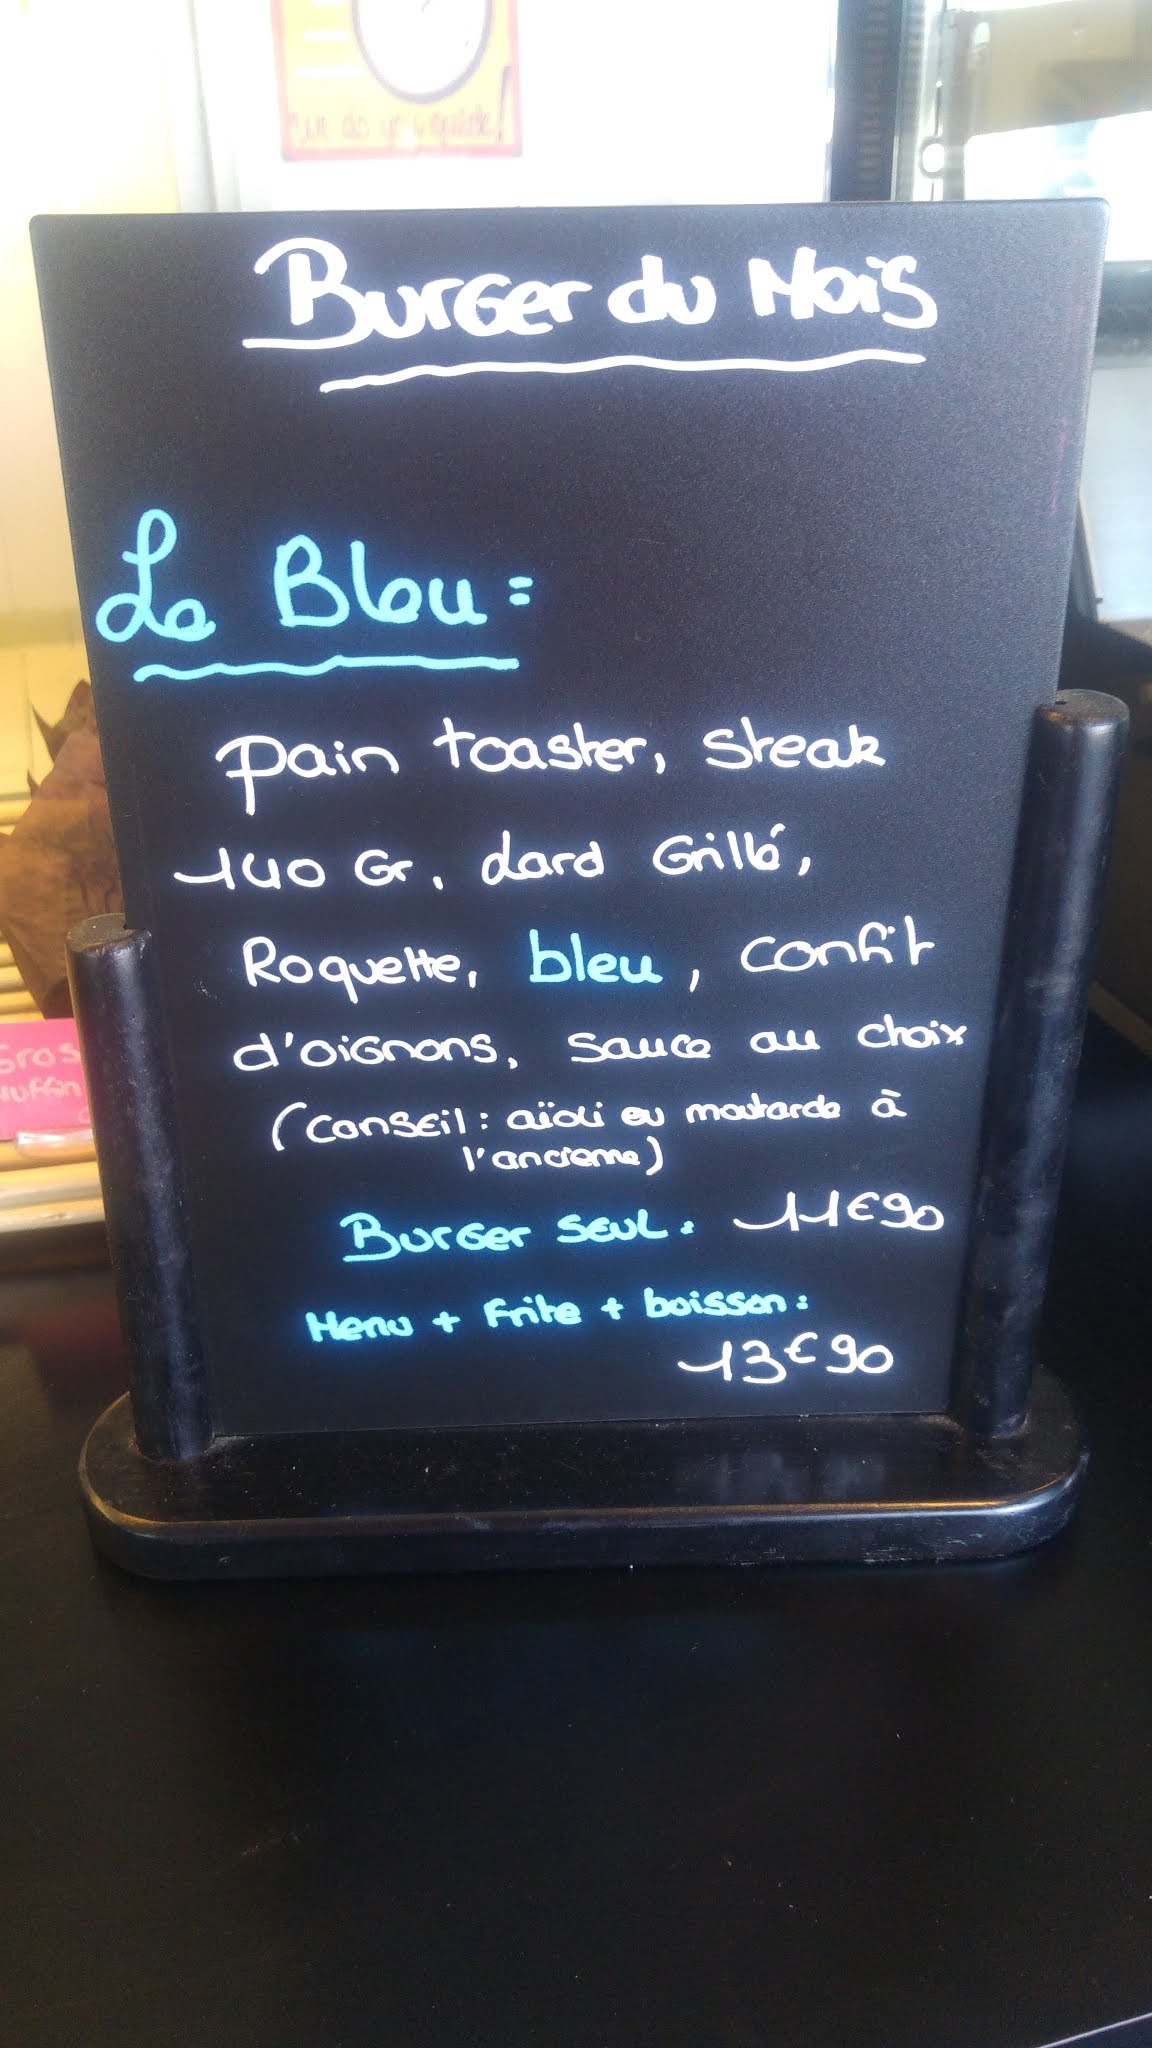 do you quiete!
Burger du Mois
Le Bleu :
pain toaster, Steak
140 Gr, Lard Grillé,
Roquette, bleu, confit
d'oignons, sauce au choix
(Conseil : aïoli ou moutarde à
l'ancienne)
Burger seul : 11€90
Menu + Frite + boisson :
13€90
Gros
Muffin